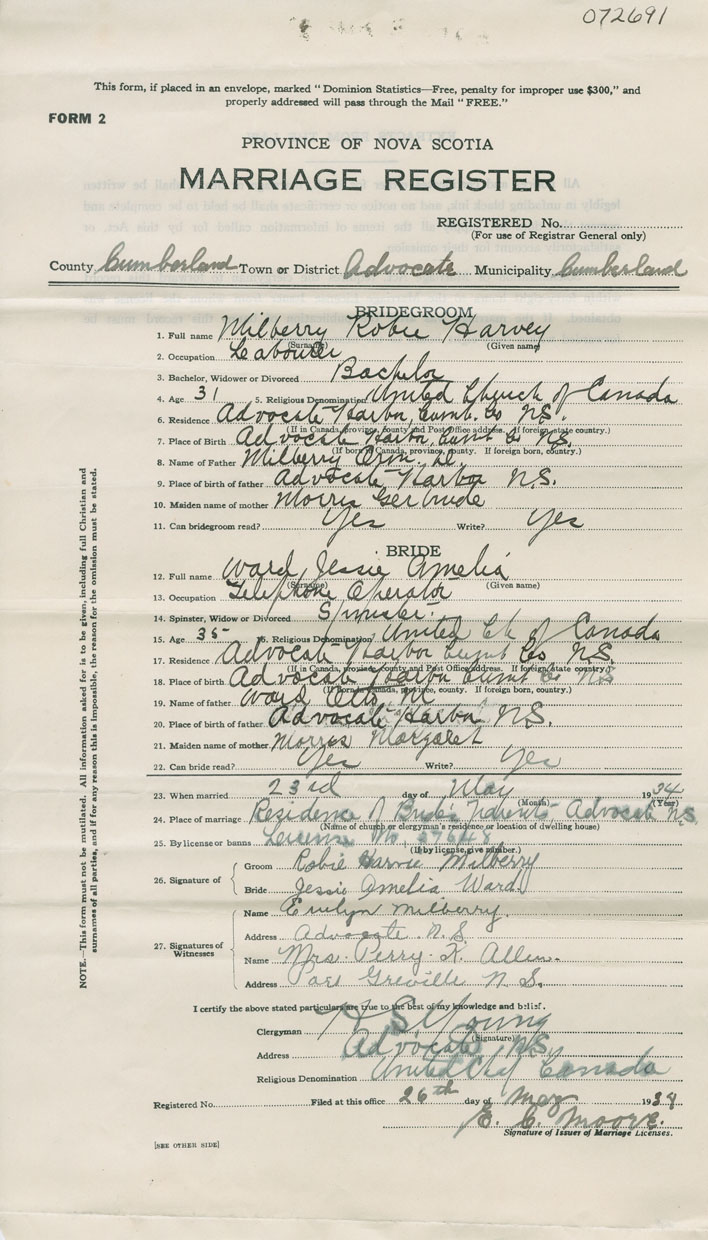 072691
This form, if placed in an envelope, marked "Dominion Statistics—Free, penalty for improper use $300," and
properly addressed will pass through the Mail "FREE."
FORM 2
PROVINCE OF NOVA SCOTIA
MARRIAGE REGISTER
REGISTERED No.
(For use of Registrar General only)
County Cumberland Town or District Advocate Municipality Cumberland
BRIDEGROOM
1. Full name Milberry Robie Harvey
(Surname) (Given name)
2. Occupation Labourer
3. Bachelor, Widower or Divorced Bachelor
4. Age 31 5. Religious Denomination United Church of Canada
6. Residence Advocate Harbor, Cumb. Co N.S.
(If in Canada, province, county and Post Office address. If foreign, state country.)
7. Place of Birth Advocate Harbor, Cumb Co N.S.
(If born in Canada, province, county. If foreign born, country.)
8. Name of Father Milberry
9. Place of birth of father Advocate Harbor N.S.
10. Maiden name of mother Morris Gertrude
11. Can bridegroom read? Yes Write? Yes
BRIDE
12. Full name Ward Jessie Amelia
(Surname) (Given name)
13. Occupation Telephone Operator
14. Spinster, Widow or Divorced Spinster.
15. Age 35 16. Religious Denomination United Ch of Canada
17. Residence Advocate Harbor Cumb Co N.S.
(If in Canada, province, county and Post Office address. If foreign state country.)
18. Place of birth Advocate Harbor Cumb Co N.S
(If born in Canada, province, county. If foreign born, country.)
19. Name of father Ward Otis M
20. Place of birth of father Advocate Harbor N.S.
21. Maiden name of mother Morris Margaret
22. Can bride read? Yes Write? Yes
23. When married 23rd day of May 1934
(Month) (Year)
24. Place of marriage Residence of Bride's Parents, Advocate N.S.
(Name of church or clergyman's residence or location of dwelling house)
25. By license or banns License No.
(If by license, give number.)
26. Signature of
Groom Robie Harvie Milberry
Bride Jessie Amelia Ward
27. Signatures of Witnesses
Name Evelyn Milberry.
Address Advocate. N.S
Name Mrs. Perry. Allen.
Address Port Greville N.S.
I certify the above stated particulars are true to the best of my knowledge and belief.
Clergyman Young
(Signature)
Address Advocate N.S.
Religious Denomination United Ch of Canada
Registered No. Filed at this office 26th day of May 1934
E. C. Moore.
Signature of Issuer of Marriage Licenses.
[SEE OTHER SIDE]
NOTE.—This form must not be mutilated. All information asked for is to be given, including full Christian and
surnames of all parties, and if for any reason this is impossible, the reason for the omission must be stated.